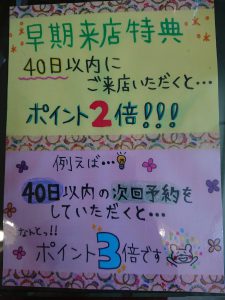 早期来店特典
40日以内に
ご来店いただくと…
ポイント2倍!!!
例えば…
40日以内の次回予約を
していただくと…
なんとっ!!
ポイント3倍です